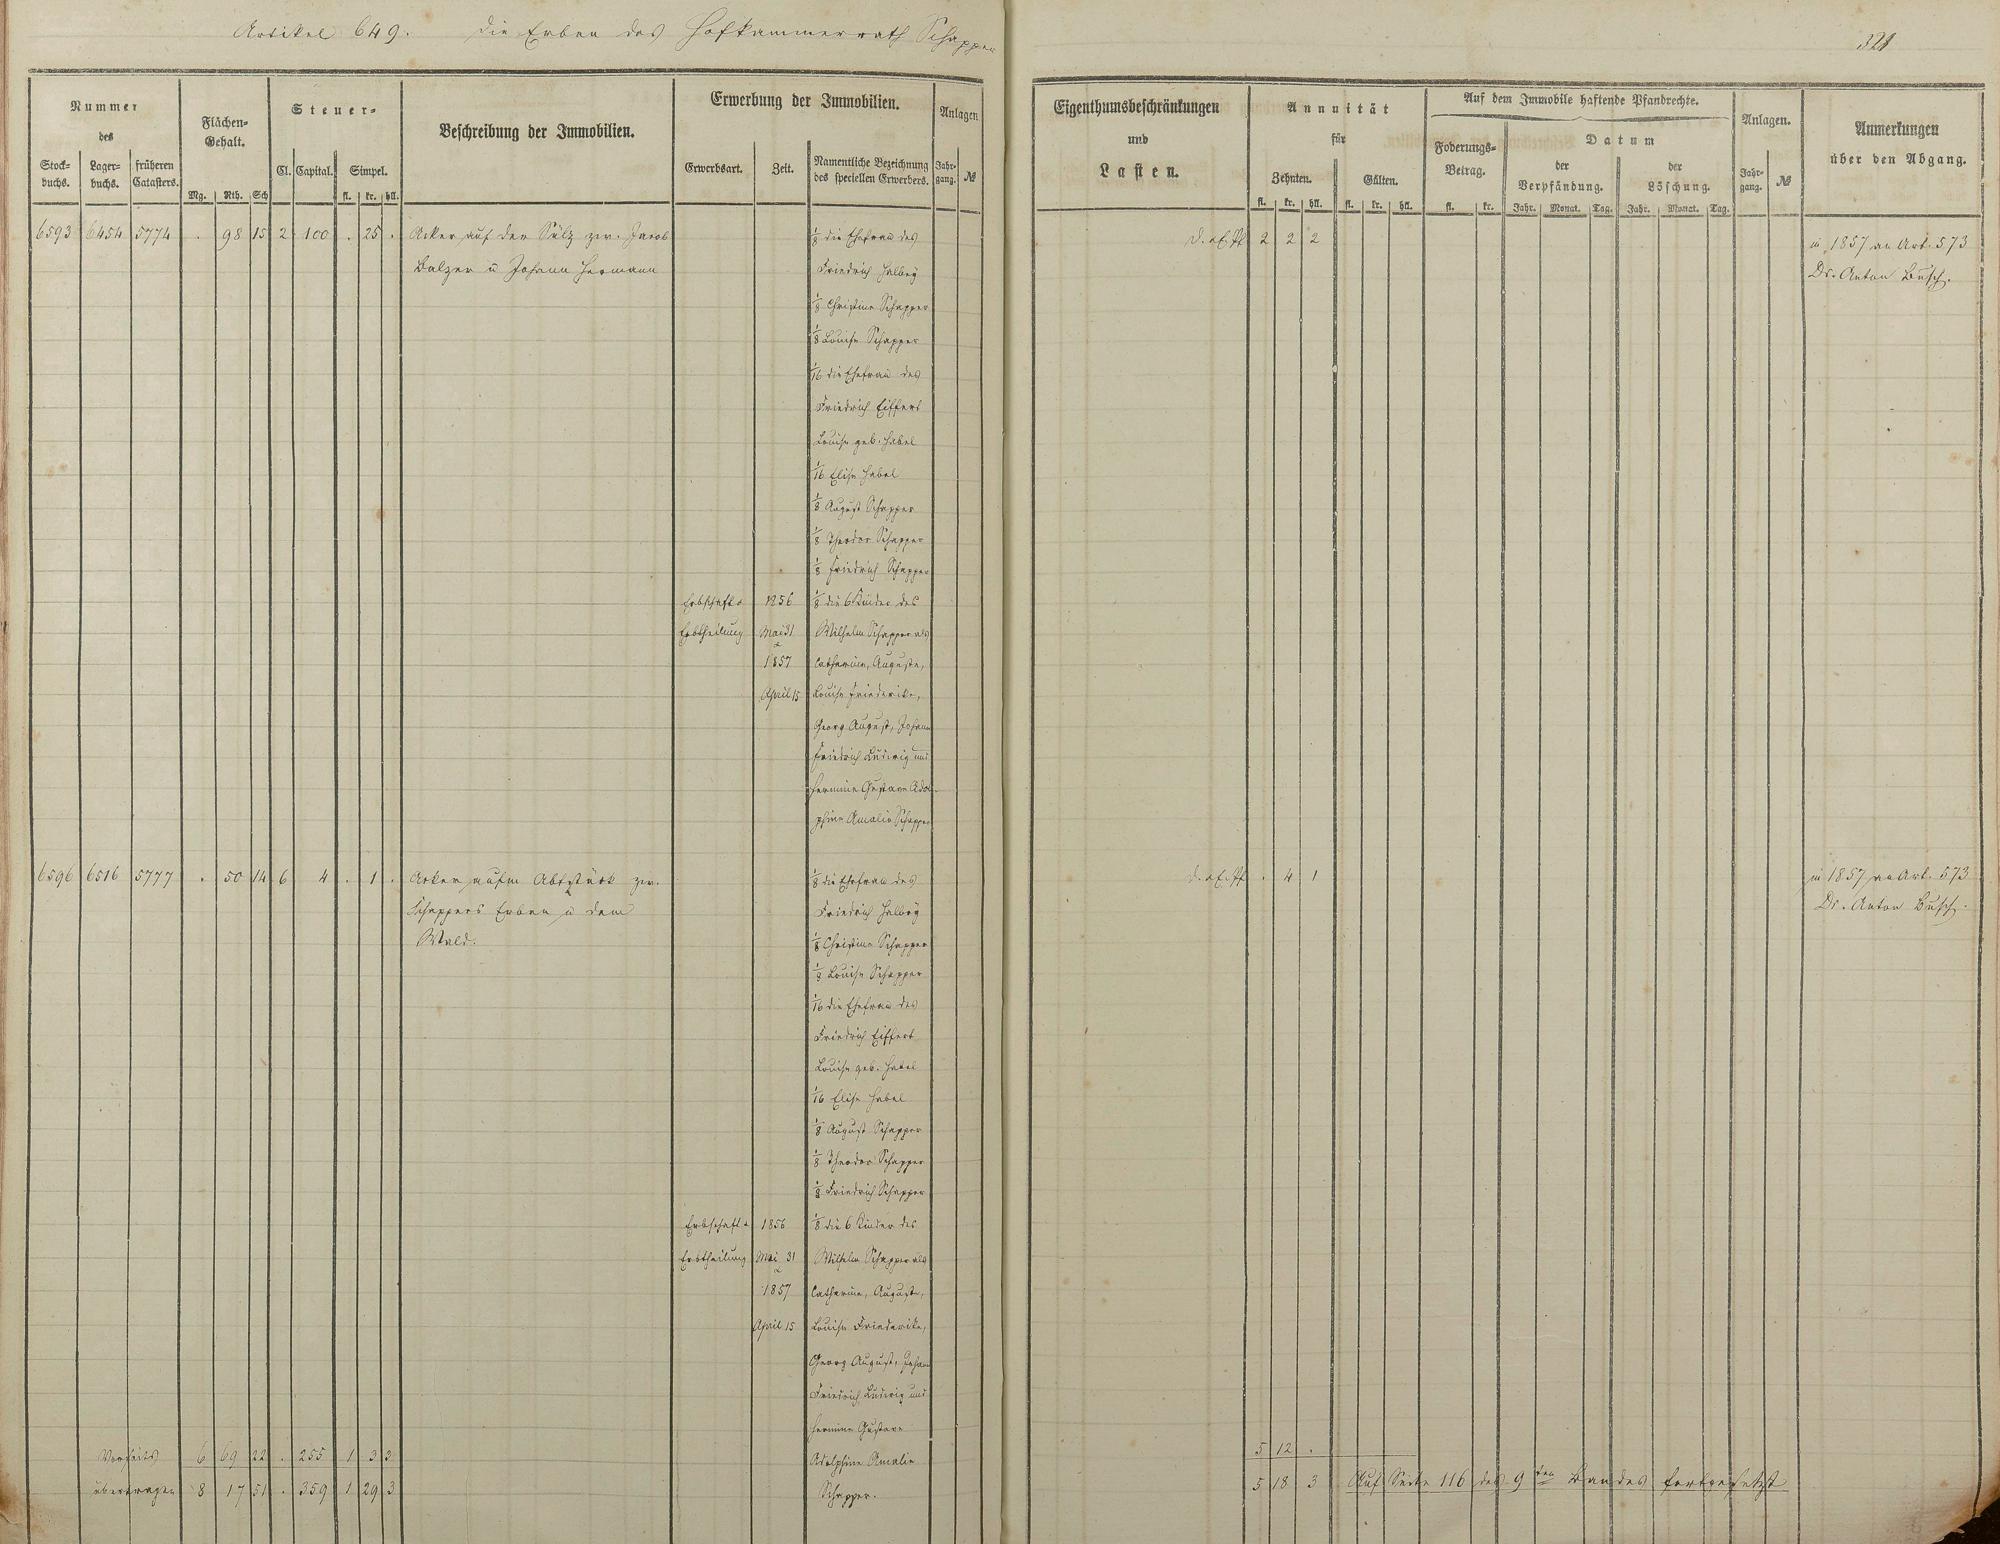 Artikel 649. die Erben des Hofkammerrath Schapper
321
Nummer
des
Stock-
buchs.
Lager-
buchs.
früheren
Catasters.
Flächen-
Gehalt.
Mg. Rth. Sch
Steuer-
Cl. Capital. Simpel.
fl. kr. hll.
Beschreibung der Immobilien.
Erwerbung der Immobilien.
Erwerbsart. Zeit.
Namentliche Bezeichnung
des speciellen Erwerbers.
Anlagen
Jahr-
gang. №
Eigenthumsbeschränkungen
und
Lasten.
Annuität
für
Zehnten. Gülten.
fl. kr. hll. fl. kr. hll.
Auf dem Immobile haftende Pfandrechte.
Foderungs-
Betrag.
fl. kr.
Datum
der
Verpfändung.
Jahr. Monat. Tag.
der
Löschung.
Jahr. Monat. Tag.
Anlagen.
Jahr-
gang. №
Anmerkungen
über den Abgang.
6593 6454 5774 . 98 15 2 100 . 25 . Acker auf der Sülz zw. Jacob
Balzer u Johann Hermann
1/8 die Ehefrau des
Friedrich Halbey
1/8 Christine Schapper
1/8 Louise Schapper
1/16 die Ehefrau des
Friedrich Eiffert
Louise geb. Habel
1/16 Elise Habel
1/8 August Schapper
1/8 Theodor Schapper
1/8 Friedrich Schapper
Erbschaft u 1856 1/8 die 6 Kinder des
Erbtheilung Mai 31 Wilhelm Schapper als
1857 Catharine, Auguste,
April 15 Louise Friederike,
Georg August, Johann
Friedrich Ludwig und
Hermine Gustave Adol-
phine Amalie Schapper
2 2 2
in 1857 an Art. 573
Dr. Anton Busch.
6596 6516 5777 . 50 14 6 4 . 1 . Acker aufm Abtstück zw.
Schappers Erben u dem
Wald.
1/8 die Ehefrau des
Friedrich Halbey
1/8 Christine Schapper
1/8 Louise Schapper
1/16 die Ehefrau des
Friedrich Eiffert
Louise geb. Habel
1/16 Elise Habel
1/8 August Schapper
1/8 Theodor Schapper
1/8 Friedrich Schapper
Erbschaft u 1856 1/8 die 6 Kinder des
Erbtheilung Mai 31 Wilhelm Schapper als
1857 Catharine, Auguste,
April 15 Louise Friederike,
Georg August, Johann
Friedrich Ludwig und
Hermine Gustave
Adolphine Amalie
Schapper.
. 4 1
in 1857 an Art. 573
Dr. Anton Busch.
Vorseits 6 69 22 . 255 1 3 3
übertragen 8 17 51 . 359 1 29 3
5 12 .
5 18 3 Auf Seite 116 des 9ten Bandes fortgesetzt